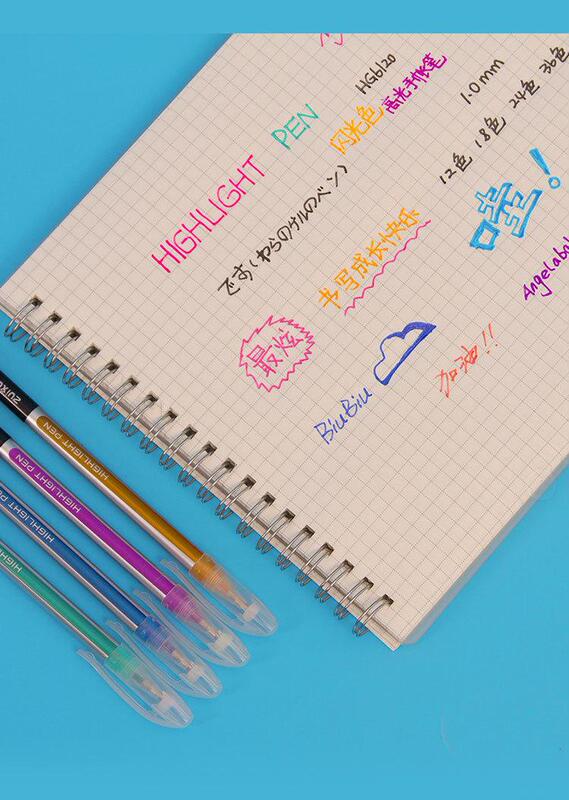 HIGHLIGHT PEN
HG6120
闪光色
高光手帐笔
1.0mm
12色 18色 24色 36色
です(わらのゲルのペン)
书写成长快乐
哇!
最炫
BiuBiu
加油!!
HIGHLIGHT PEN
HIGHLIGHT PEN
HIGHLIGHT PEN